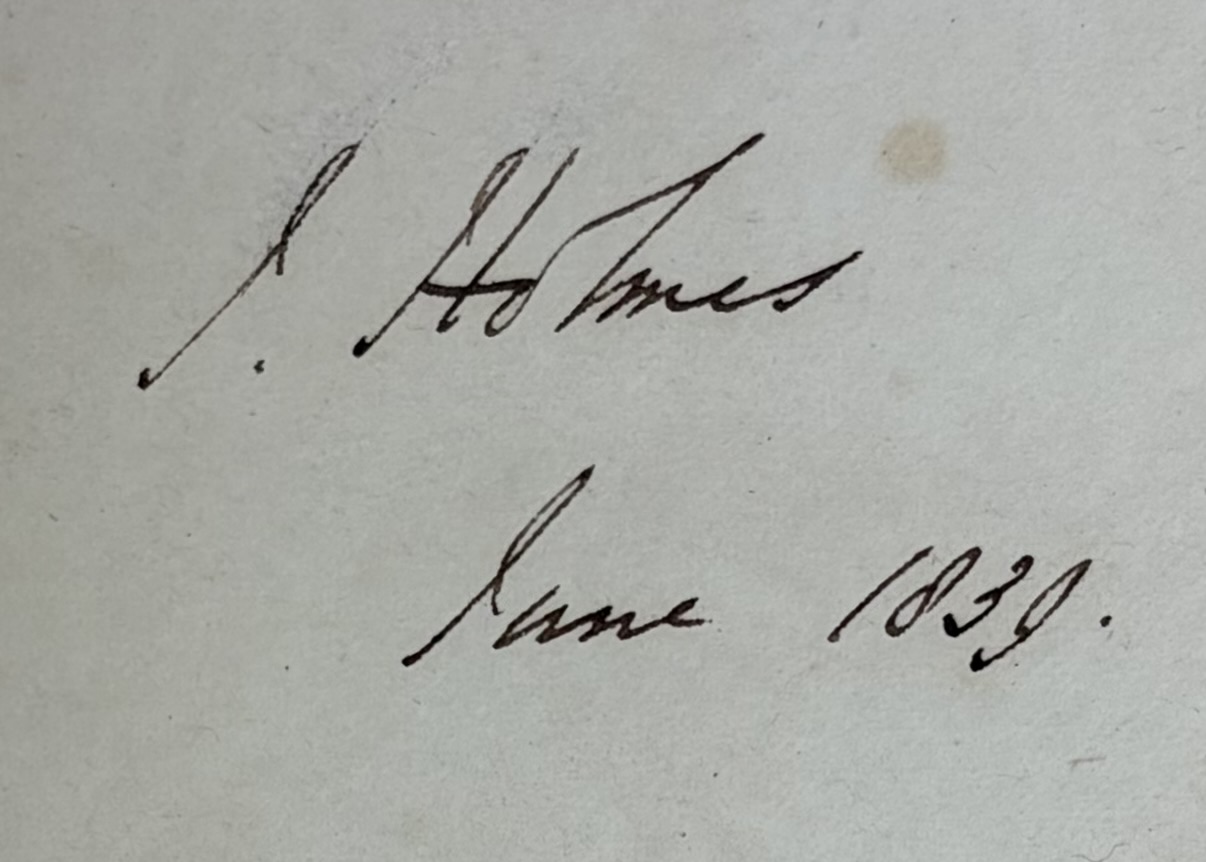 J. Holmes
June 1839.